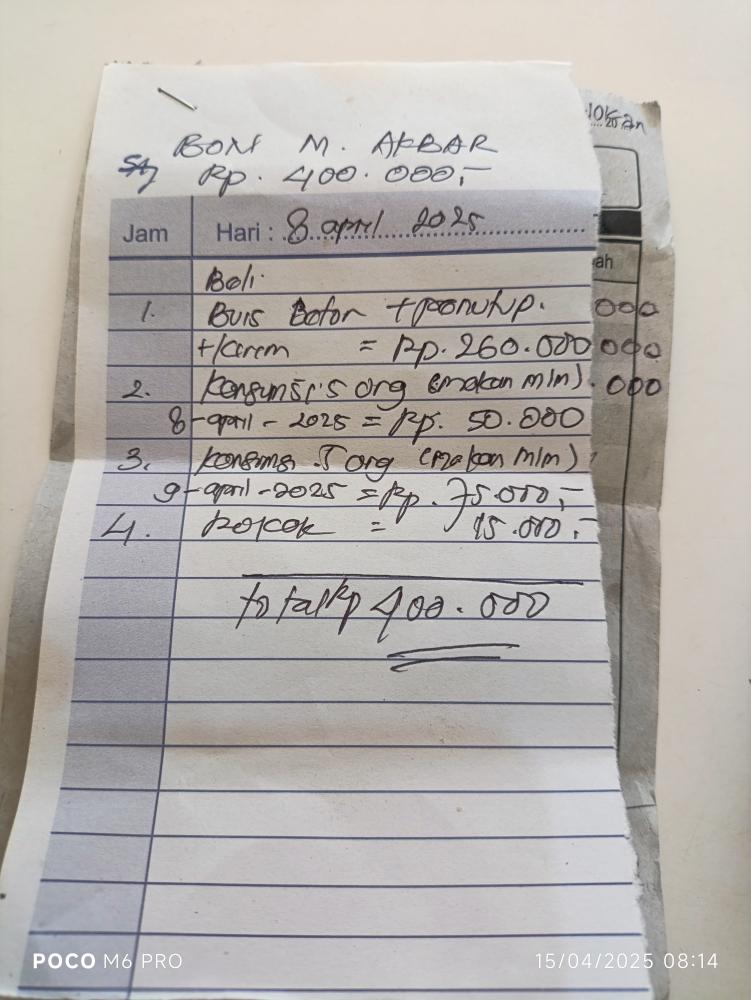 BON M. AKBAR
Rp. 400.000,-
Jam Hari : 8 april 2025
Beli.
1. Buis Beton + penutup.
+ kirim = Rp. 260.000
2. Konsumsi 5 org (makan mlm).
8-april-2025 = Rp. 50.000
3. konsumsi 5 org (makan mlm)
9-april-2025 = Rp. 75.000,-
4. Rokok = 15.000,-
total Rp 400.000
ah
000
000
000
POCO M6 PRO
15/04/2025 08:14